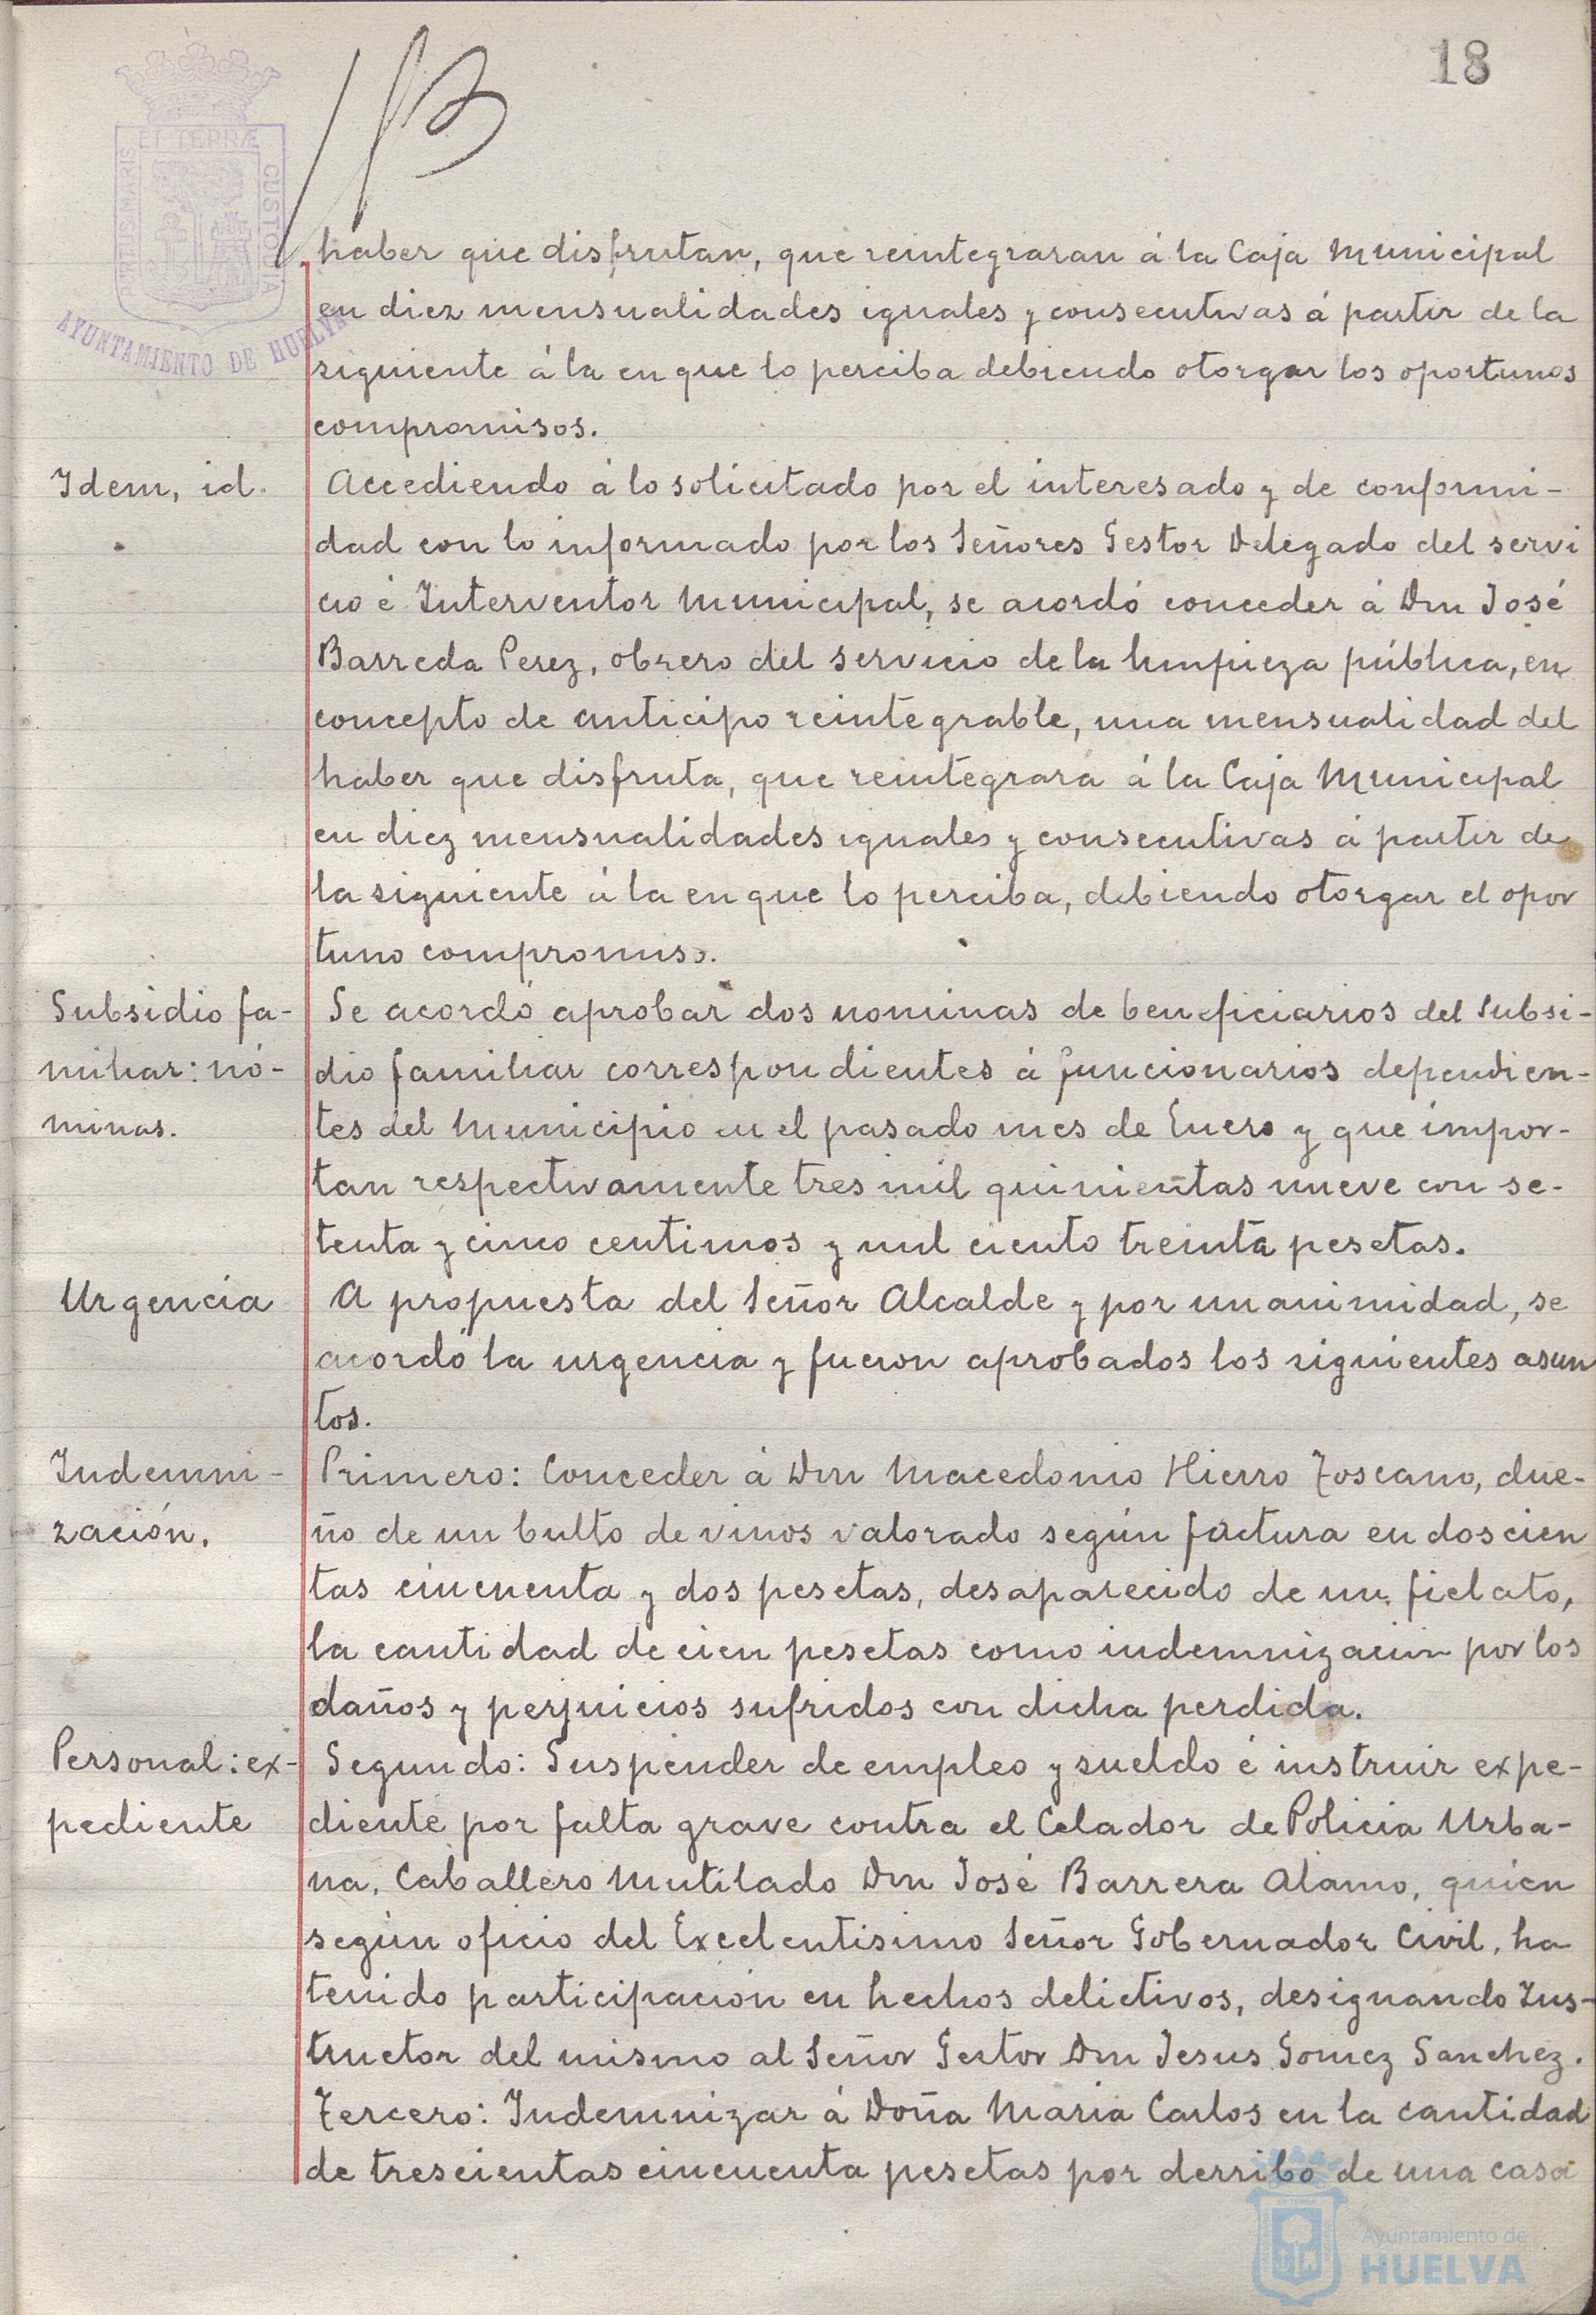 18
PORTUS MARIS
ET TERRÆ
CUSTODIA
AYUNTAMIENTO DE HUELVA
haber que disfrutan, que reintegraran á la Caja Municipal
en diez mensualidades iguales y consecutivas á partir de la
siguiente á la en que lo perciba debiendo otorgar los oportunos
compromisos.
Idem, id.
Accediendo á lo solicitado por el interesado y de conformi-
dad con lo informado por los Señores Gestor Delegado del servi
cio é Interventor Municipal, se acordó conceder á Don José
Barreda Perez, obrero del servicio de la limpieza pública, en
concepto de anticipo reintegrable, una mensualidad del
haber que disfruta, que reintegrará á la Caja Municipal
en diez mensualidades iguales y consecutivas á partir de
la siguiente á la en que lo perciba, debiendo otorgar el opor
tuno compromiso.
Subsidio fa-
miliar: nó-
minas.
Se acordó aprobar dos nominas de beneficiarios del Subsi-
dio familiar correspondientes á funcionarios dependien-
tes del Municipio en el pasado mes de Enero y que impor-
tan respectivamente tres mil quinientas nueve con se-
tenta y cinco centimos y mil ciento treinta pesetas.
Urgencia
A propuesta del Señor Alcalde y por unanimidad, se
acordó la urgencia y fueron aprobados los siguientes asun
tos.
Indemni-
zación.
Primero: Conceder á Don Macedonio Hierro Toscano, due-
ño de un bulto de vinos valorado según factura en doscien
tas cincuenta y dos pesetas, desaparecido de un fielato,
la cantidad de cien pesetas como indemnización por los
daños y perjuicios sufridos con dicha perdida.
Personal: ex-
pediente
Segundo: Suspender de empleo y sueldo é instruir expe-
diente por falta grave contra el Celador de Policia Urba-
na, Caballero Mutilado Don José Barrera Alamo, quién
según oficio del Excelentisimo Señor Gobernador Civil, ha
tenido participación en hechos delictivos, designando Ins-
tructor del mismo al Señor Gestor Don Jesus Gomez Sanchez.
Tercero: Indemnizar á Doña Maria Carlos en la cantidad
de trescientas cincuenta pesetas por derribo de una casa
Ayuntamiento de
HUELVA